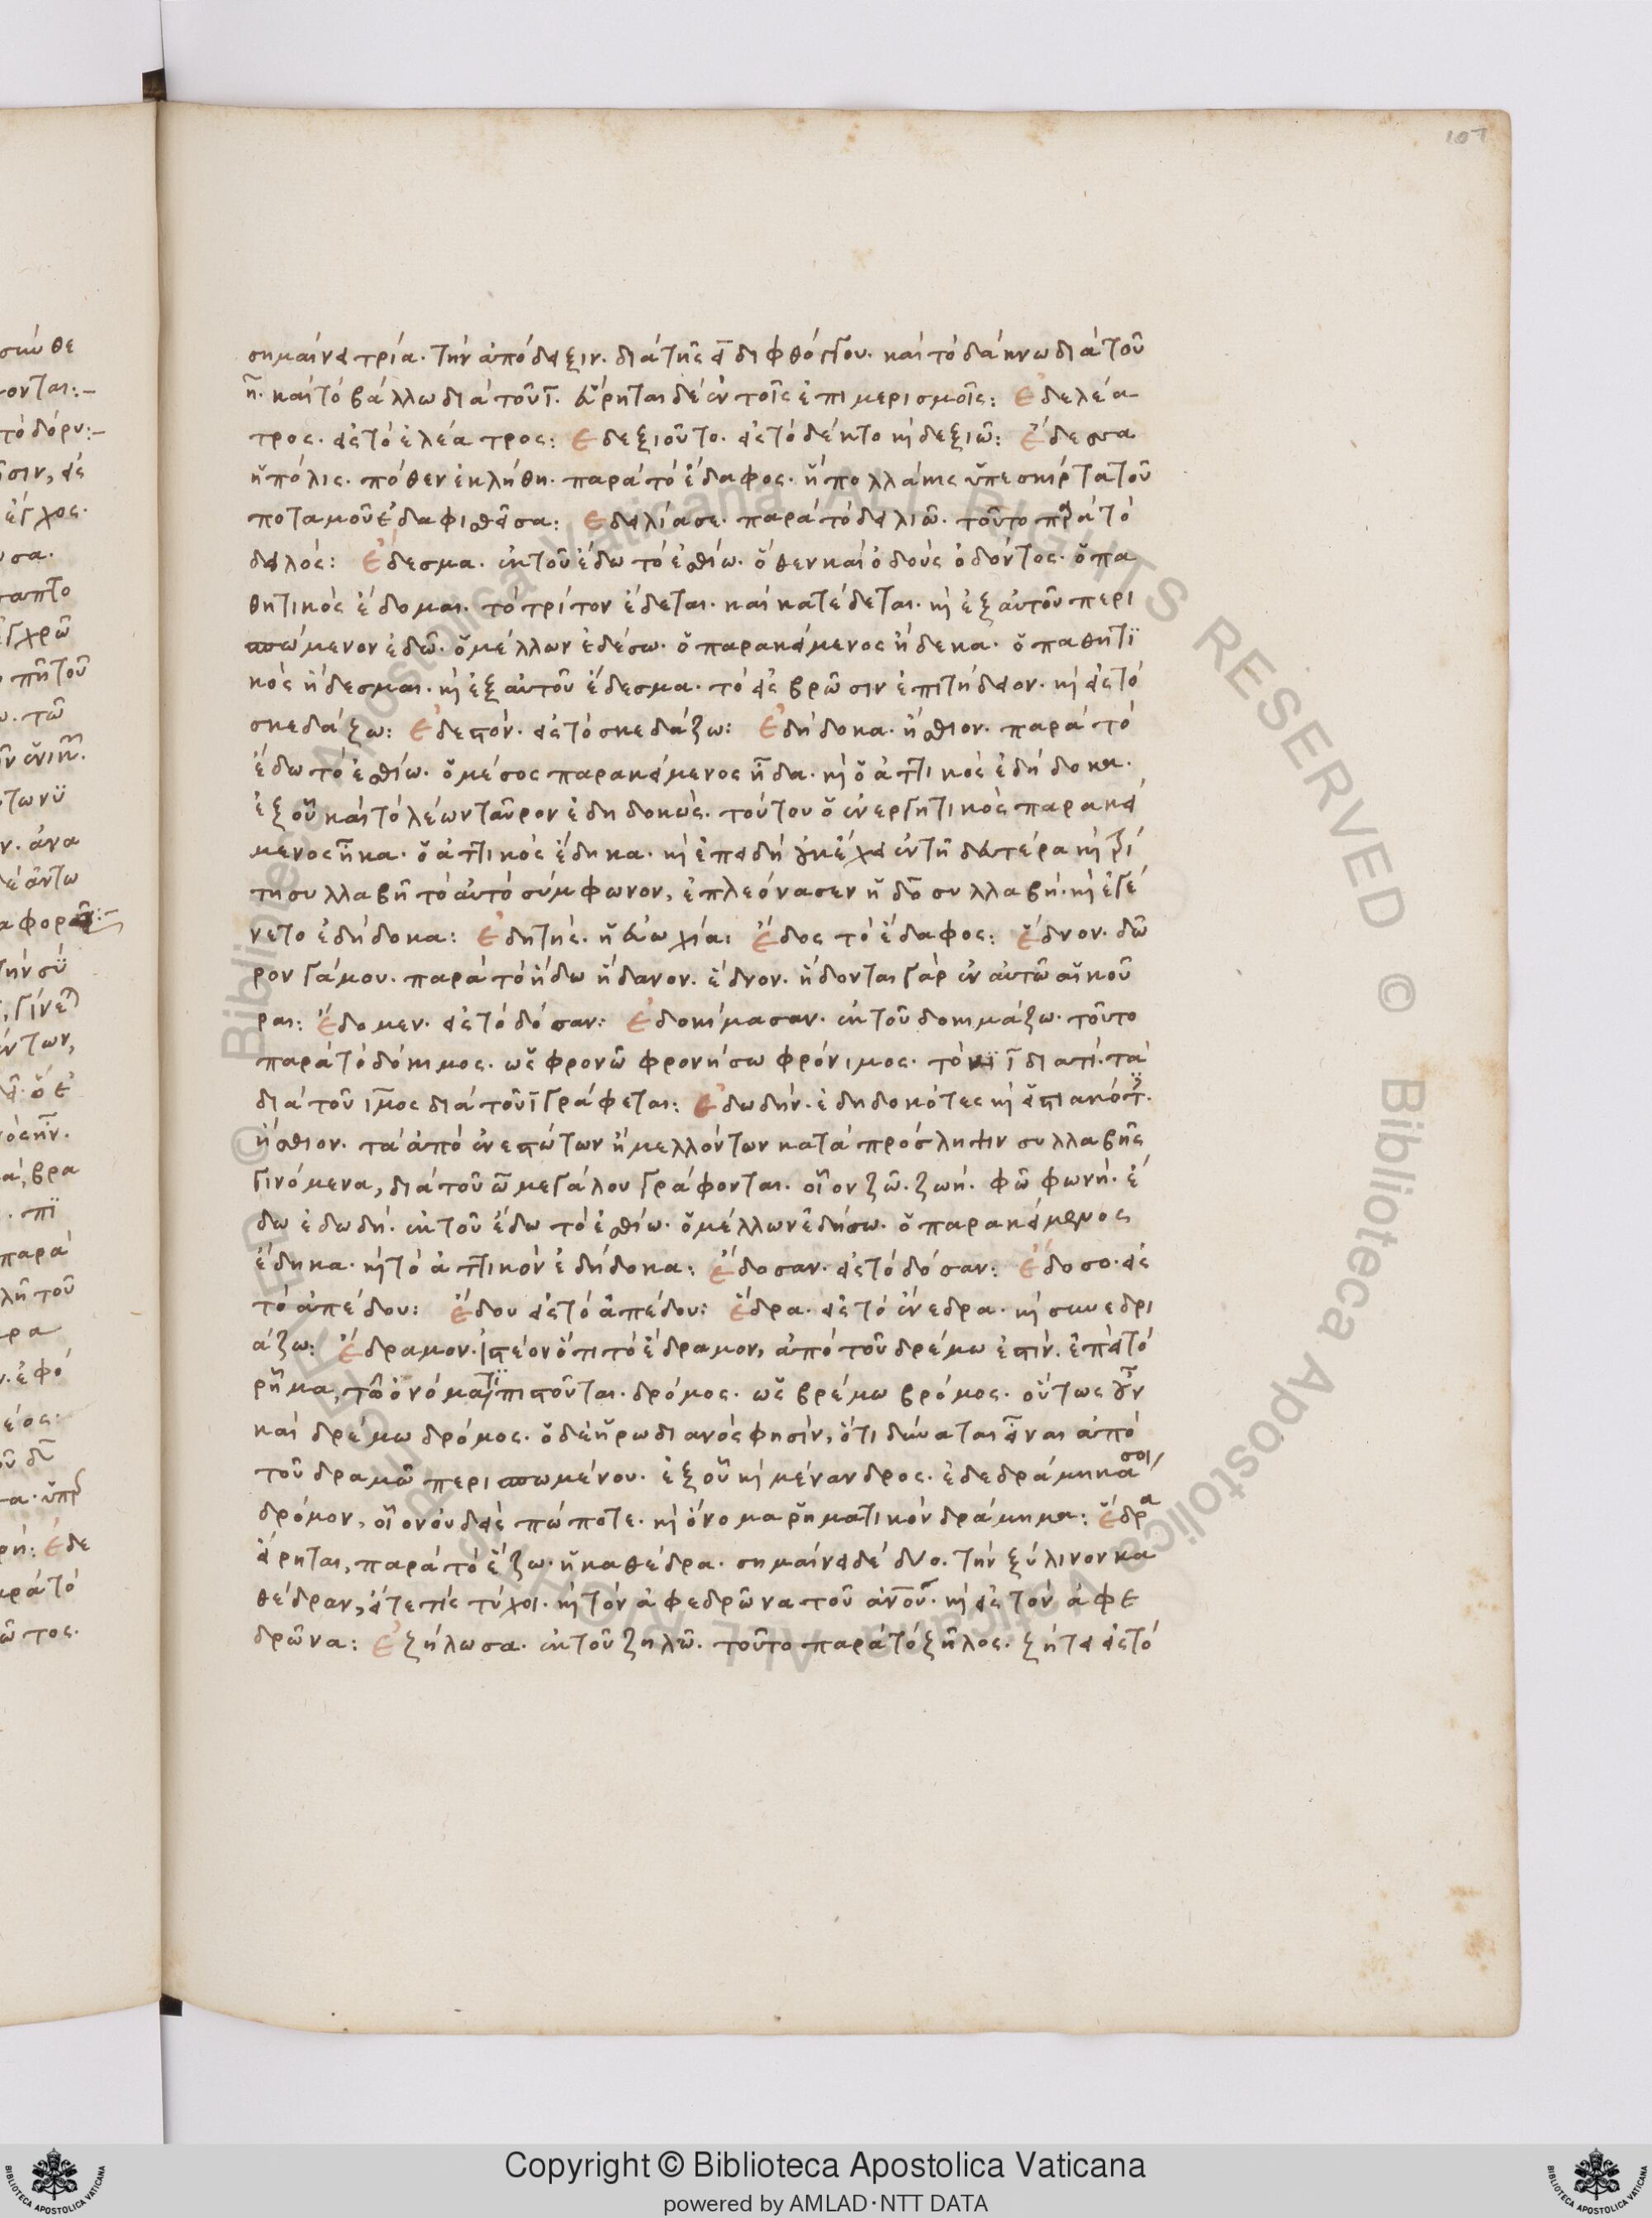 107
σημαίνει τρία. τὴν ἀπόδειξιν. διὰ τῆς ει διφθόγγου. καὶ τὸ δάκνω διὰ τοῦ
η. καὶ τὸ βάλλω διὰ τοῦ ι. εἴρηται δὲ ἐν τοῖς ἐπιμερισμοῖς: Ἐδελέα
τρος. εἰς τὸ ἐλέατρος: Ἐδεξιοῦντο. εἰς τὸ δέκτο κὶ δεξιῶ: Ἔδεσσα
ἡ πόλις. πόθεν ἐκλήθη. παρὰ τὸ ἔδαφος. ἡ πολλάκις ὑπε τοῦ
ποταμοῦ ἐδαφισθεῖσα: Ἐδειλίασε. παρὰ τὸ δειλιῶ. τοῦτο παρὰ τὸ
δειλός: Ἔδεσμα. ἐκ τοῦ ἔδω τὸ ἐσθίω. ὅθεν καὶ ὀδοὺς ὀδόντος. ὁ πα
θητικὸς ἔδομαι. τὸ τρίτον ἔδεται. καὶ κατέδεται. κὶ ἐξ αὐτοῦ περι
σπώμενον ἐδῶ. ὁ μέλλων ἐδέσω. ὁ παρακείμενος ἤδεκα. ὁ παθητι
κὸς ἤδεσμαι. κὶ ἐξ αὐτοῦ ἔδεσμα. τὸ εἰς βρῶσιν ἐπιτήδειον. κὶ εἰς τὸ
σκεδάζω: Ἐδεστόν. εἰς τὸ σκεδάζω: Ἐδήδοκα. ἤσθιον. παρὰ τὸ
ἔδω τὸ ἐσθίω. ὁ μέσος παρακείμενος ἦδα. κὶ ὁ ἀττικὸς ἐδήδοκα.
ἐξ οὗ καὶ τὸ λέων ταῦρον ἐδηδοκώς. τούτου ὁ ἐνεργητικὸς παρακεί
μενος ἦκα. ὁ ἀττικὸς ἔδηκα. κὶ ἐπειδὴ οὐκ ἔχει ἐν τῇ δευτέρα κὶ τρί
τη συλλαβῇ τὸ αὐτὸ σύμφωνον, ἐπλεόνασεν ἡ δο συλλαβή. κὶ ἐγέ
νετο ἐδήδοκα: Ἐδητής. ἡ εὐωχία: Ἔδος τὸ ἔδαφος: Ἔδνον. δῶ
ρον γάμου. παρὰ τὸ ἥδω ἥδανον. ἔδνον. ἥδονται γὰρ ἐν αὐτῶ αἱ κοῦ
ραι: Ἔδομεν. εἰς τὸ δόσαν: Ἐδοκίμασαν. ἐκ τοῦ δοκιμάζω. τοῦτο
παρὰ τὸ δόκιμος. ὡς φρονῶ φρονήσω φρόνιμος. τὸ κι ι διατί. τὰ
διὰ τοῦ ιμος διὰ τοῦ ι γράφεται: Ἐδωδήν. ἐδηδοκότες κὶ εἱστιακότες.
ἤσθιον. τὰ ἀπὸ ἐνεστώτων ἢ μελλόντων κατὰ πρόσληψιν συλλαβῆς
γινόμενα, διὰ τοῦ ω μεγάλου γράφονται. οἷον ζῶ. ζωή. φῶ φωνή. ἔ
δω ἐδωδή. ἐκ τοῦ ἔδω τὸ ἐσθίω. ὁ μέλλων ἐδήσω. ὁ παρακείμενος
ἔδηκα. κὶ τὸ ἀττικὸν ἐδήδοκα: Ἔδοσαν. εἰς τὸ δόσαν: Ἔδοσο. εἰς
τὸ ἀπέδου: Ἔδου εἰς τὸ ἀπέδου: Ἕδρα. εἰς τὸ ἐνέδρα. κὶ συνεδρι
άζω: Ἔδραμον. ἰστέον ὅτι τὸ ἔδραμον, ἀπὸ τοῦ δρέμω ἐστίν. ἐπεὶ τὸ
ῥῆμα, τῶ ὀνόματι πιστοῦται. δρόμος. ὡς βρέμω βρόμος. οὕτως οὖν
καὶ δρέμω δρόμος. ὁ δὲ ἡρωδιανός φησιν, ὅτι δύναται εἶναι ἀπὸ
τοῦ δραμῶ περισπωμένου. ἐξ οὗ κὶ μένανδρος. ἐδεδράμηκά σοι
δρόμον, οἷον οὐδεὶς πώποτε. κὶ ὄνομα ῥηματικὸν δράμημα: Ἕδρα
εἴρηται, παρὰ τὸ ἕζω. ἡ καθέδρα. σημαίνει δὲ δύο. τὴν ξύλινον κα
θέδραν, εἴτε τις τύχοι. κὶ τὸν ἀφεδρῶνα τοῦ ἀνου. κὶ εἰς τὸν ἀφε
δρῶνα: Ἐζήλωσα. ἐκ τοῦ ζηλῶ. τοῦτο παρὰ τὸ ζῆλος. ζήτει εἰς τὸ
Copyright © Biblioteca Apostolica Vaticana
powered by AMLAD·NTT DATA